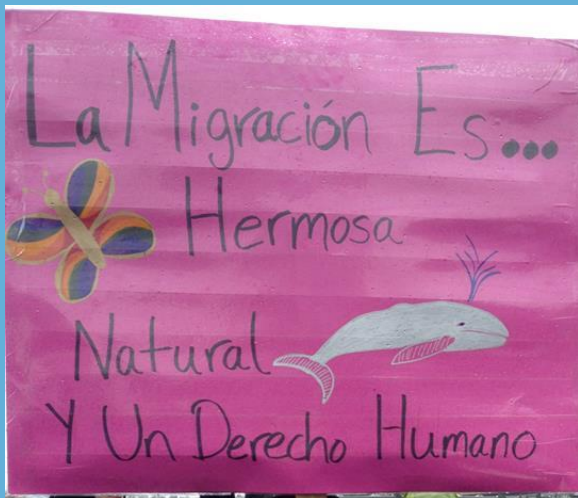 La Migración Es...
Hermosa
Natural
Y Un Derecho Humano